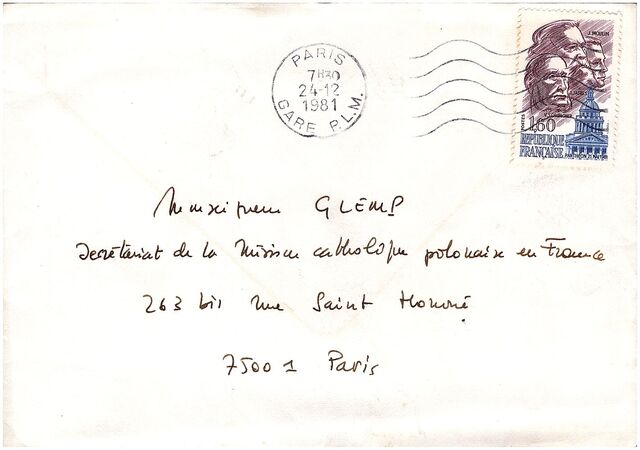 PARIS
7H30
24-12
1981
GARE P.L.M.
J. MOULIN
1,60
REPUBLIQUE
FRANÇAISE
PANTHEON 21 MAI 1981
Monseigneur GLEMP
Secrétariat de la Mission catholique polonaise en France
263 bis rue Saint Honoré
75001 Paris